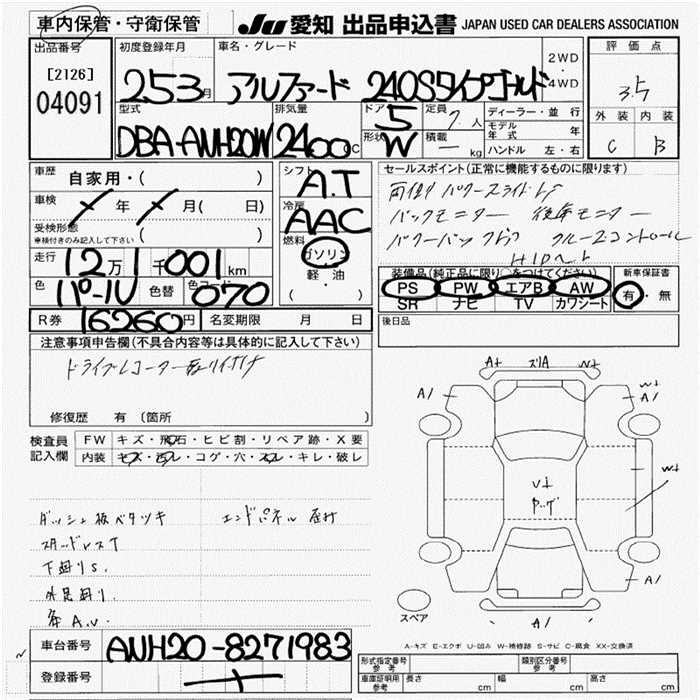 車内保管・守衛保管
JU 愛知 出品申込書 JAPAN USED CAR DEALERS ASSOCIATION
出品番号
[2126]
04091
初度登録年月
253月
車名・グレード
アルファード 240Sタイプゴールド
2WD
・
4WD
評価点
3.5
外装 内装
C B
型式
DBA-ANH20W
排気量
2400CC
ドア 5
形状 W
定員 7人
積載 — kg
ディーラー・並行
モデル年式 年
ハンドル 左・右
車歴 自家用・( )
車検 年 月( 日)
受検形態
車検付きのみ記入して下さい ( )
走行 12万1千001km
色 パール 色替 色コード 070
シフト A.T
冷房 AAC
燃料
ガソリン
軽・油
( )
セールスポイント(正常に機能するものに限ります)
両側 パワースライドドア
バックモニター 後席モニター
パワーバックドア クルーズコントロール
HIDヘッド
装備品(純正品に限り○をつけてください)
PS PW エアB AW
SR ナビ TV カワシート
新車保証書
有・無
後日品
R券 16260円 名変期限 月 日
注意事項申告欄(不具合内容等は具体的に記入して下さい)
ドライブレコーター取り付け
修復歴 有 (箇所 )
検査員
記入欄
FW キズ・飛石・ヒビ割・リペア跡・X要
内装 キズ・汚レ・コゲ・穴・スレ・キレ・破レ
ダッシュ板ベタツキ エンドパネル
スタッドレスT
下廻りS.
外足廻り.
A.U.
A+ ズリA W+
A/ W+
A/
U+
ヤッケ
W+
A/
A/
スペア
A-キズ E-エクボ U-凹み W-補修跡 S-サビ C-腐食 XX-交換済
車台番号 ANH20-8271983
登録番号
形式指定番号
参考
類別区分番号
参考
車庫証明用
参考
長さ cm 幅 cm 高さ cm